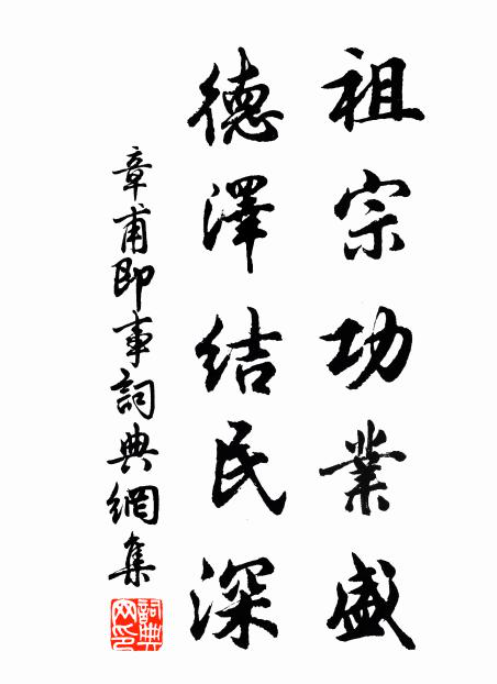 祖宗功業盛
德澤結民深
章甫即事詞典網集
詞典网印